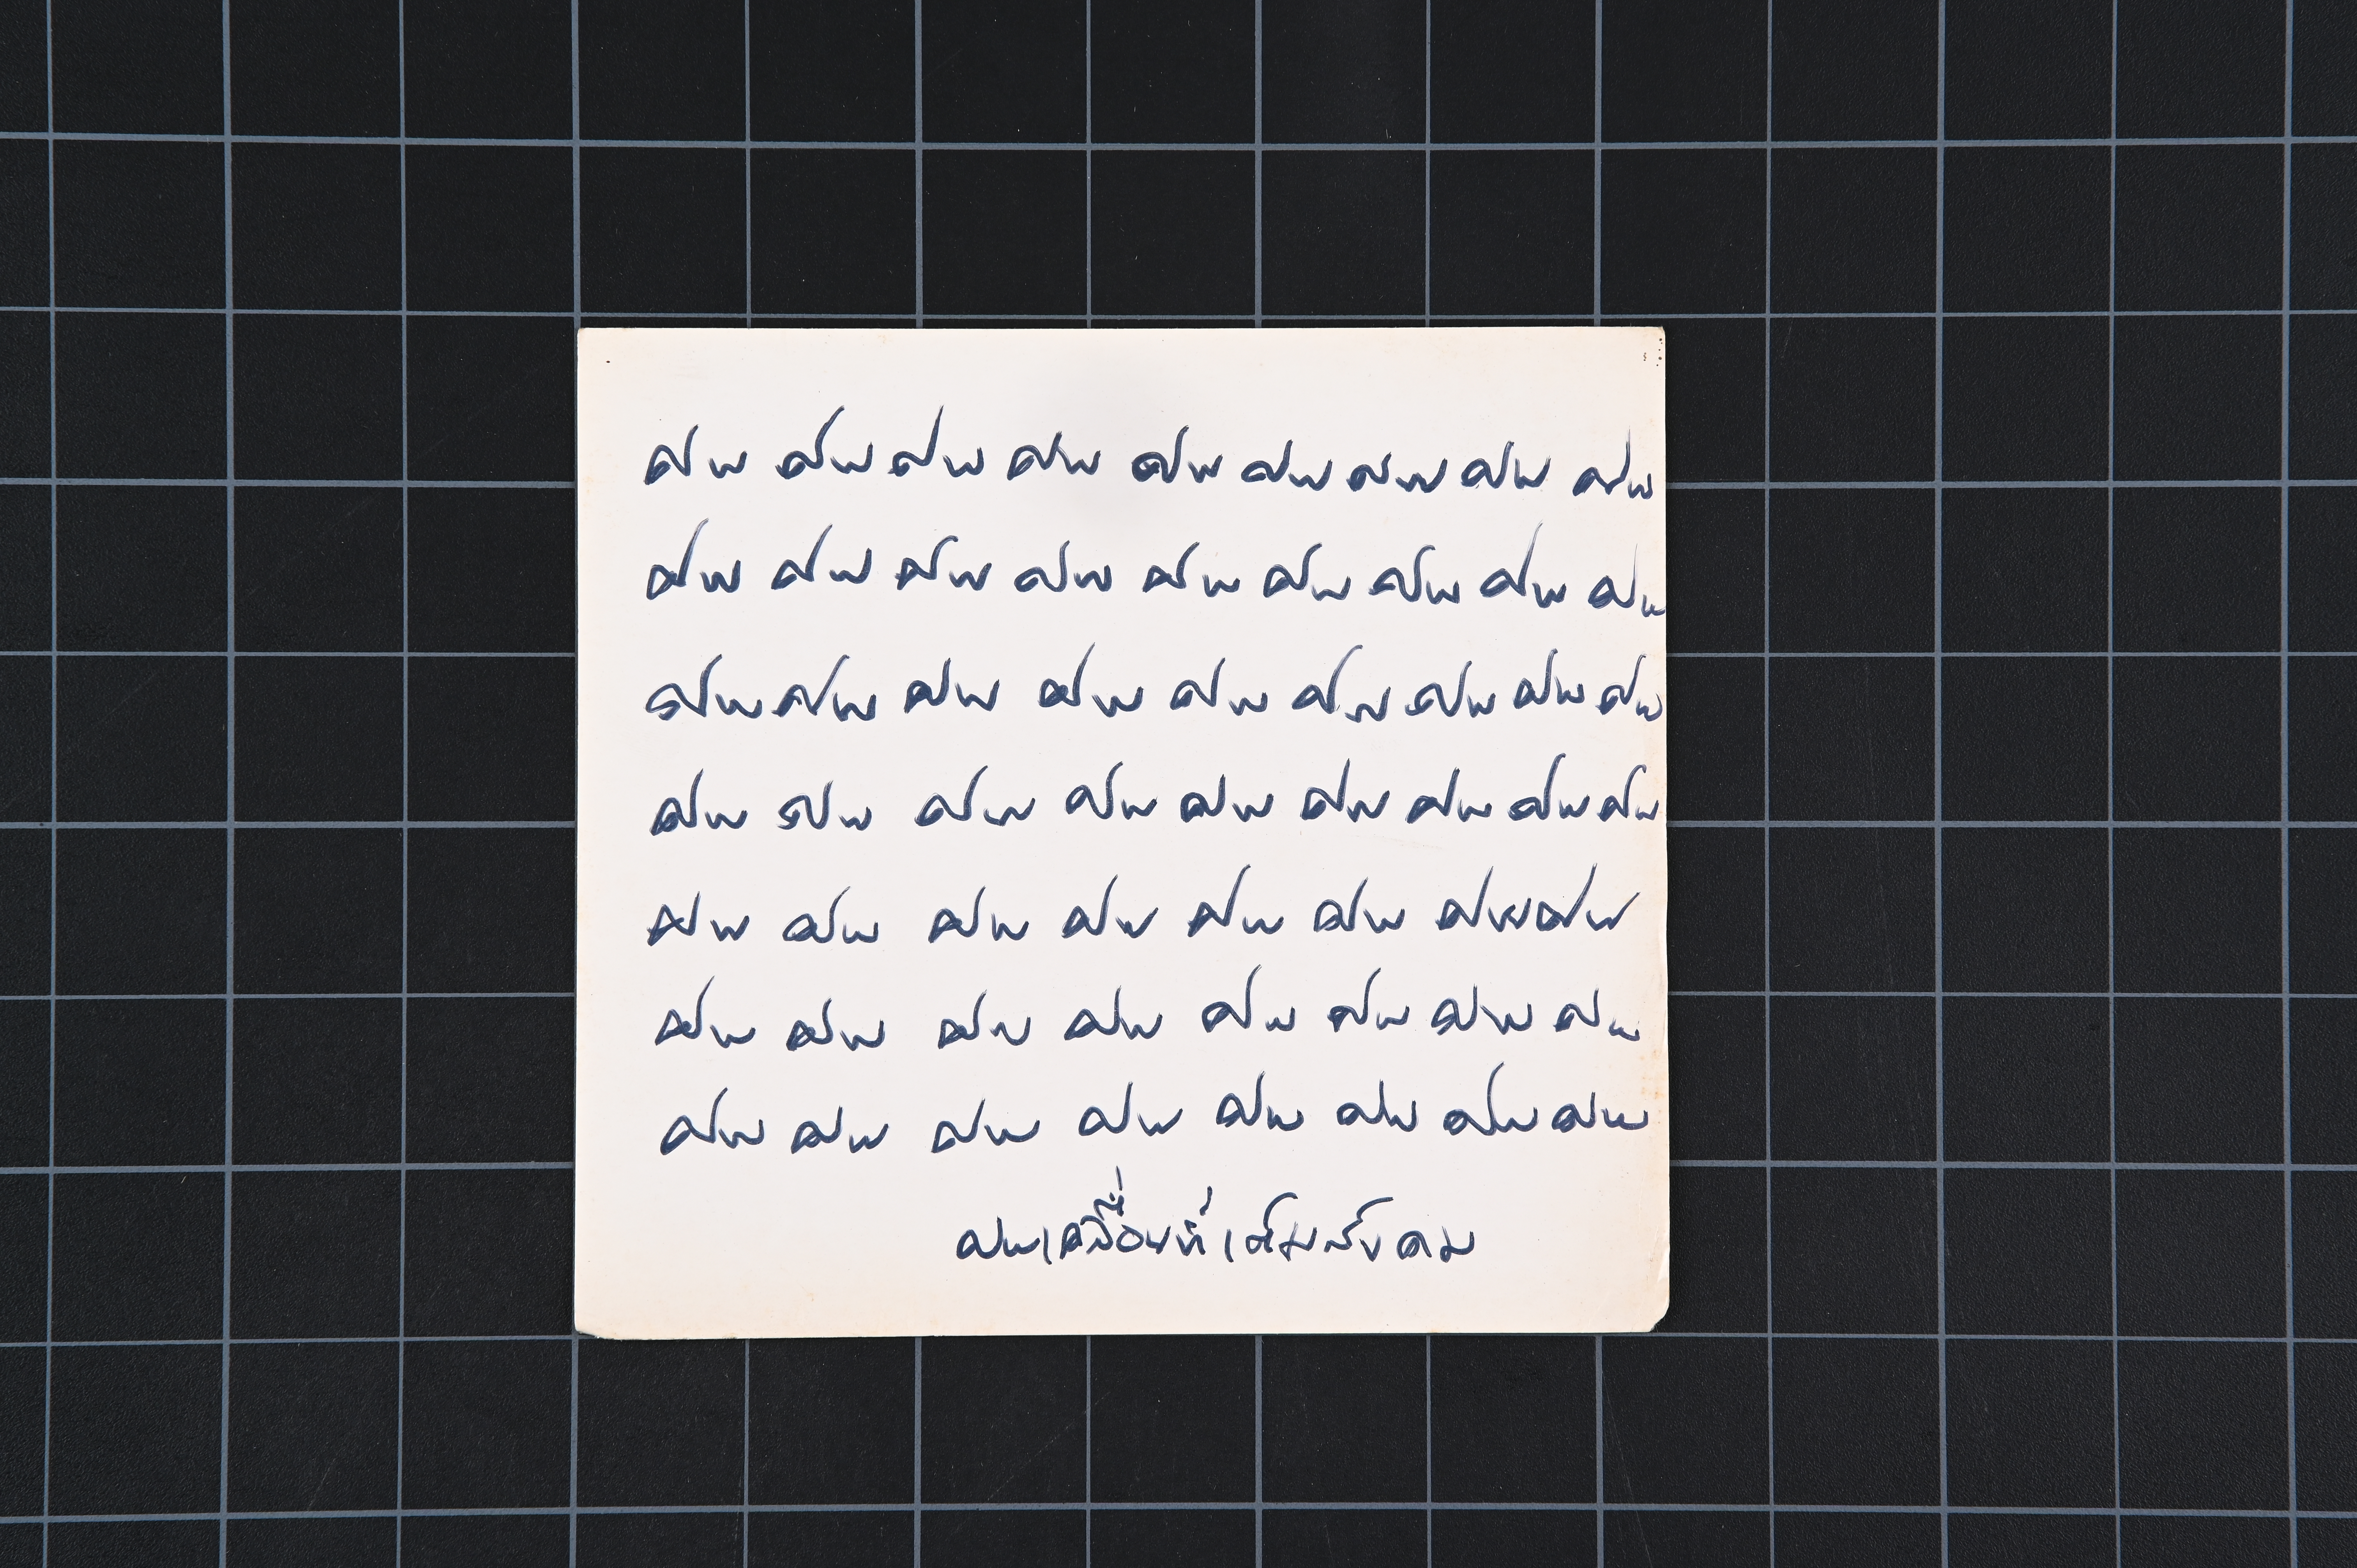 ศพ ศพ ศพ ศพ ศพ ศพ ศพ ศพ ศพ
ศพ ศพ ศพ ศพ ศพ ศพ ศพ ศพ ศพ
ศพ ศพ ศพ ศพ ศพ ศพ ศพ ศพ ศพ
ศพ ศพ ศพ ศพ ศพ ศพ ศพ ศพ ศพ
ศพ ศพ ศพ ศพ ศพ ศพ ศพ ศพ
ศพ ศพ ศพ ศพ ศพ ศพ ศพ ศพ
ศพ ศพ ศพ ศพ ศพ ศพ ศพ ศพ
ศพเคลื่อนที่เต็มสังคม